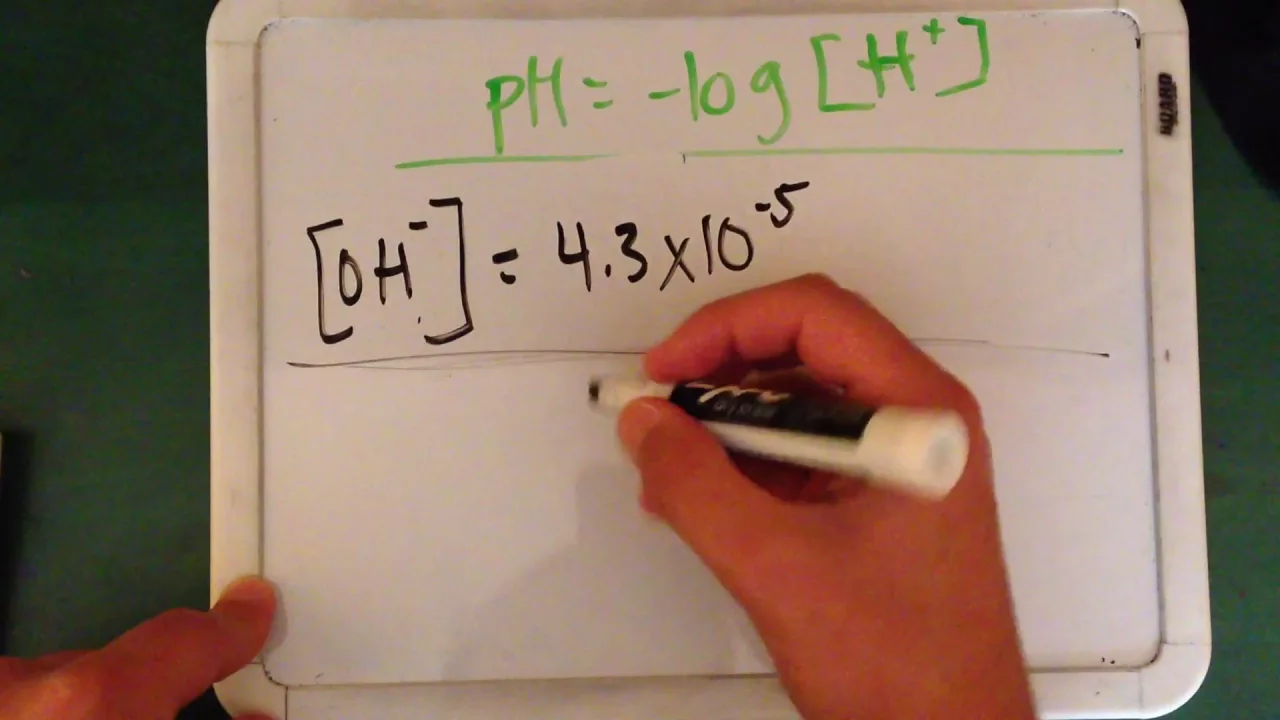 pH = -log [H⁺]
[OH⁻] = 4.3 x 10⁻⁵
BOARD